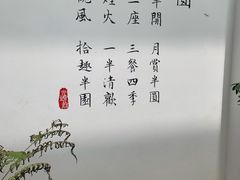 半開 月賞半圓
一座 三餐四季
煙火 一半清歡
晚風 拾趣半園